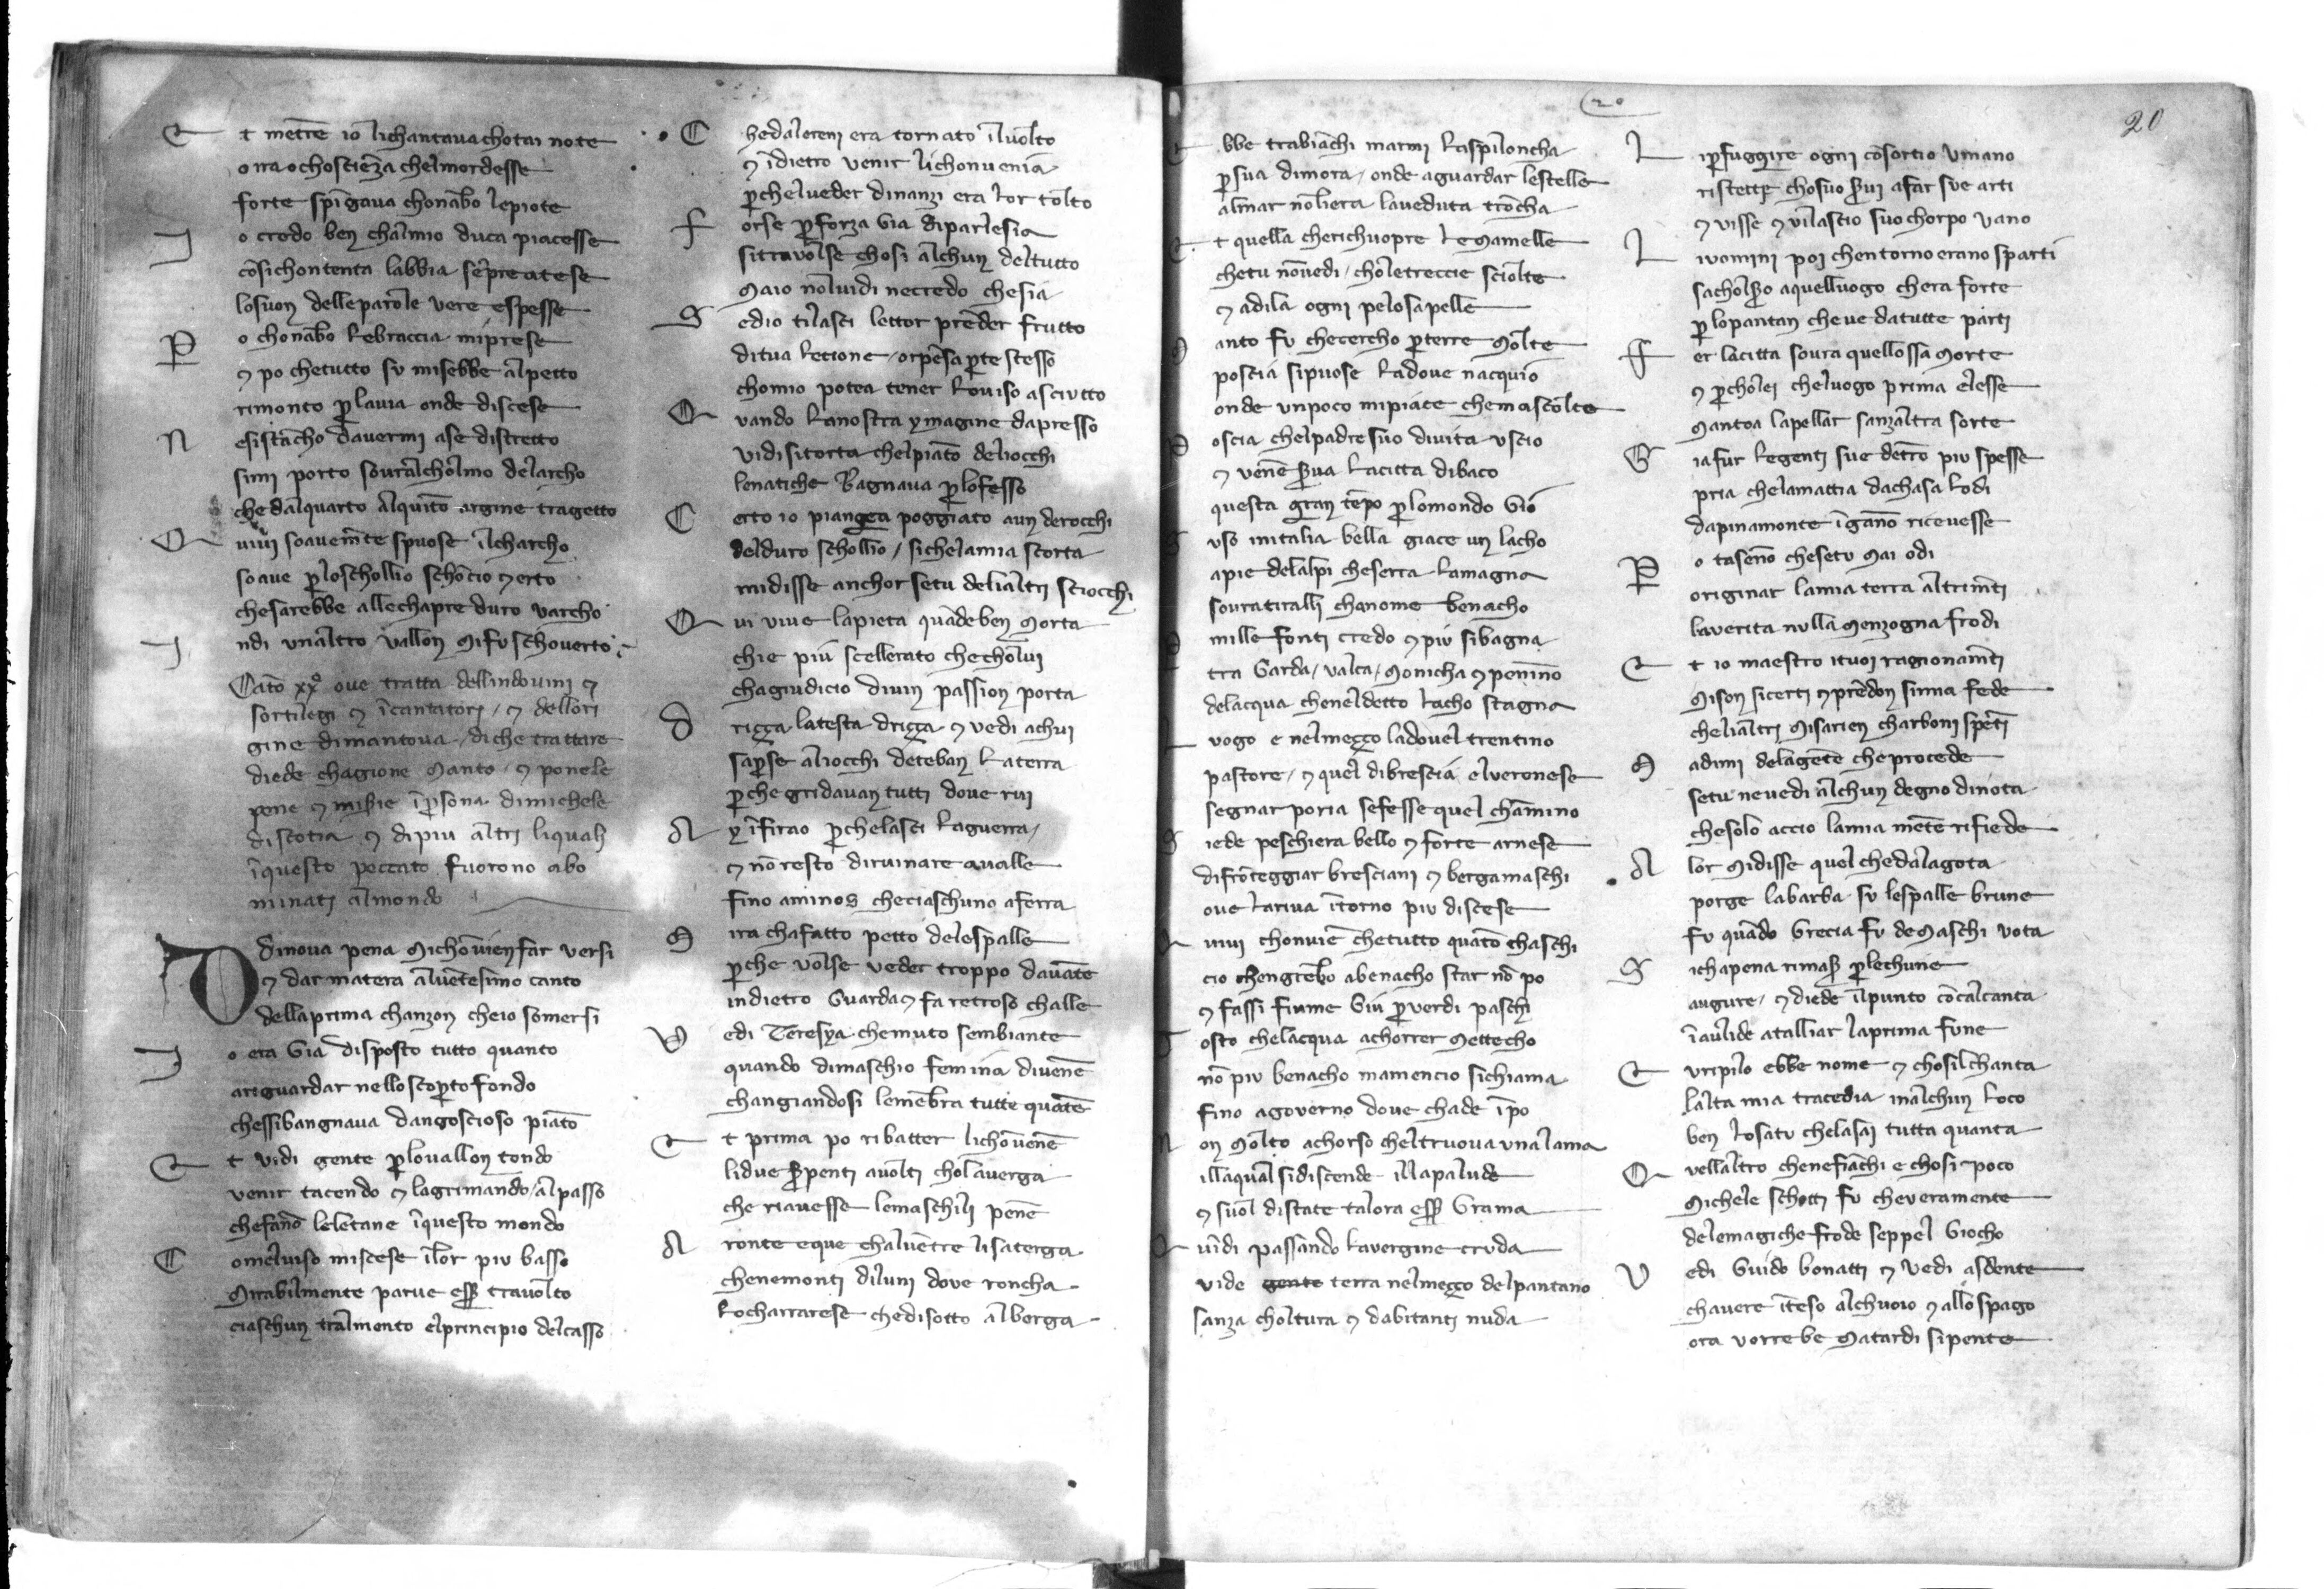 Et mētre io lichantaua chotai note
o ira o choscienza chelmordesse
forte spīgaua chonābo lepiote
Io credo ben chalmio duca piacesse
cōsichontenta labbia sēpre atese
losuon delleparole vere espesse
Po chonābo lebraccia miprese
⁊ po chetutto su misebbe alpetto
rimonto ꝑlauia onde discese
Nesistācho dauermi ase distretto
simi porto souralcholmo delarcho
chedalquarto alquīto argine tragetto
Quiui soauemēte spuose ilcharcho
soaue ꝑloschollio schōcio ⁊ erto
chesarebbe allechapre duro varcho
Indi vnaltro vallon mifu schouerto
Cātō xxº oue tratta dellindouini ⁊
sortilegi ⁊ īcantatori / ⁊ dellori
gine dimantoua / diche trattare
diede chagione manto / ⁊ ponele
pene ⁊ mis̄ie īꝑsona dimichele
discotia ⁊ dipiu altri liquali
īquesto peccato fuorono abo
minati almondo
Dinoua pena michōuien far versi
⁊ dar matera aluētesimo canto
dellaprima chanzon cheio somersi
Io era gia disposto tutto quanto
ariguardar nelloscoꝑto fondo
chessibangnaua dangoscioso piāto
Et vidi gente ꝑlouallon tondo
venir tacendo ⁊ lagrimando / alpasso
chefāno leletane īquesto mondo
Comeluiso miscese īlor piu basso
Mirabilmente parue ess̄ trauolto
ciaschun tralmento elprincipio delcasso
Chedalereni era tornato iluolto
⁊ īdietro venir lichonuenia
ꝑcheluedere dinanzi era lor tolto
Forse ꝑforza gia diparlesia
sitrauolse chosi alchun deltutto
Maio nōluidi necredo chesia
Sedio tilasci lettor prēder frutto
ditua lecione / orpēsa ꝑte stesso
chomio potea tener louiso asciutto
Quando lanostra ymagine dapresso
vidi sitorta chelpiāto deliocchi
lenatiche bagnaua ꝑlofesso
Certo io piangea poggiato aun derocchi
delduro schollio / sichelamia scorta
midisse anchor setu delialtri sciocchi
Qui viue lapieta quādeben morta
chie piu scellerato chechōlui
chagiudicio diuin passion porta
Drizza latesta drizza ⁊ vedi achui
saꝑse aliocchi deteban laterra
ꝑchegridauan tutti doue rui
Anfirao ꝑchelasci laguerra /
⁊ nō resto diruinare aualle
fino aminos checiaschuno aferra
Mira chafatto petto delespalle
ꝑche volse veder troppo dauāte
indietro guarda ⁊ fa retroso challe
Vedi Teresya chemuto sembiante
quando dimaschio femina diuene
changiandosi lemēbra tutte quāte
Et prima po ribatter lichōuene
lidue s̄penti auolti cholauerga
che riauesse lemaschili pene
Aronte eque chaluētre lisaterga
chenemonti diluni doue roncha
locharrarese chedisotto alberga
Ebbe trabiāchi marmi laspiloncha
ꝑ sua dimora / onde aguardar lestelle
almar nōliera laueduta trōcha
Et quella cherichuopre lemamelle
chetu nōuedi / choletreccie sciolte
⁊ adila ogni pelosapelle
Manto fu chececho ꝑterre molte
poscia sipuose ladoue nacquio
onde vnpoco mipiace chemascolte
Poscia chelpadre suo diuita vscio
⁊ vēne s̄ua lacitta dibaco
questa gran tēpo ꝑlomondo gio
Suso initalia bella giace un lacho
apie delalpi cheserra lamagna
souratiralli chanome benacho
Per mille fonti credo ⁊ piu sibagna
tra garda / valca / monicha ⁊ penino
delacqua cheneldetto lacho stagna
Luogo e nelmezzo ladouel trentino
pastore / ⁊ quel dibrescia elveronese
segnar poria sefesse quel chamino
Siede peschiera bello ⁊ forte arnese
difrōteggiar bresciani ⁊ bergamaschi
oue lariua ītorno piu discese
Quiui chonuiē chetutto quāto chaschi
cio chengrēbo abenacho star nō po
⁊ fassi fiume giu ꝑverdi paschi
Tosto chelacqua achorrer mettecho
nō piu benacho mamencio sichiama
fino agouerno doue chade īpo
Non molto achorso cheltruoua unalama
illaqual sidiscende illapalude
⁊ suol distate talora ess̄ grama
Quīdi passando lauergine cruda
vide gente terra nelmezzo delpantano
sanza choltura ⁊ dabitanti nuda
20
20
Liꝑfuggire ogni cōsortio vmano
ristette chosuo s̄ui afar sue arti
⁊ visse ⁊ vilascio suo chorpo vano
Liuomini poi chentorno erano sparti
sachols̄o aquelluogo chera forte
ꝑ lopantan cheue datutte parti
Fer lacitta soura quellossa morte
⁊ ꝑcholei cheluogo prima elesse
mantoa lapellar sanzaltra sorte
Gia fur legenti sue dētro piu spesse
pria chelamattia dachasalodi
dapinamonte īgāno riceuesse
Po tasēno chesetu mai odi
originar lamia terra altrimēti
lauerita nulla menzogna frodi
Et io maestro ituoi ragionamēti
mison sicerti ⁊ prēdon simia fede
chelialtri misarien charboni spēti
Madimi delagēte cheprocede
setu neuedi alchun degno dinota
chesolo accio lamia mēte rifiede
Alor midisse quel chedalagota
porge labarba su lespalle brune
fu quādo grecia fu demaschi vota
Sichapena rimas̄ ꝑlechune
augure / ⁊ diede ilpunto cōcalcanta
īaulide atalliar laprima fune
Euripilo ebbe nome ⁊ chosilchanta
lalta mia tracedia inalchun loco
ben losatu chelasai tutta quanta
Quellaltro chenefiāchi e chosi poco
Michele schotti fu cheueramente
delemagiche frode seppel giocho
Vedi guido bonatti ⁊ vedi asdente
chauere īteso alchuoio ⁊ allo spago
ora vorrebe matardi sipente